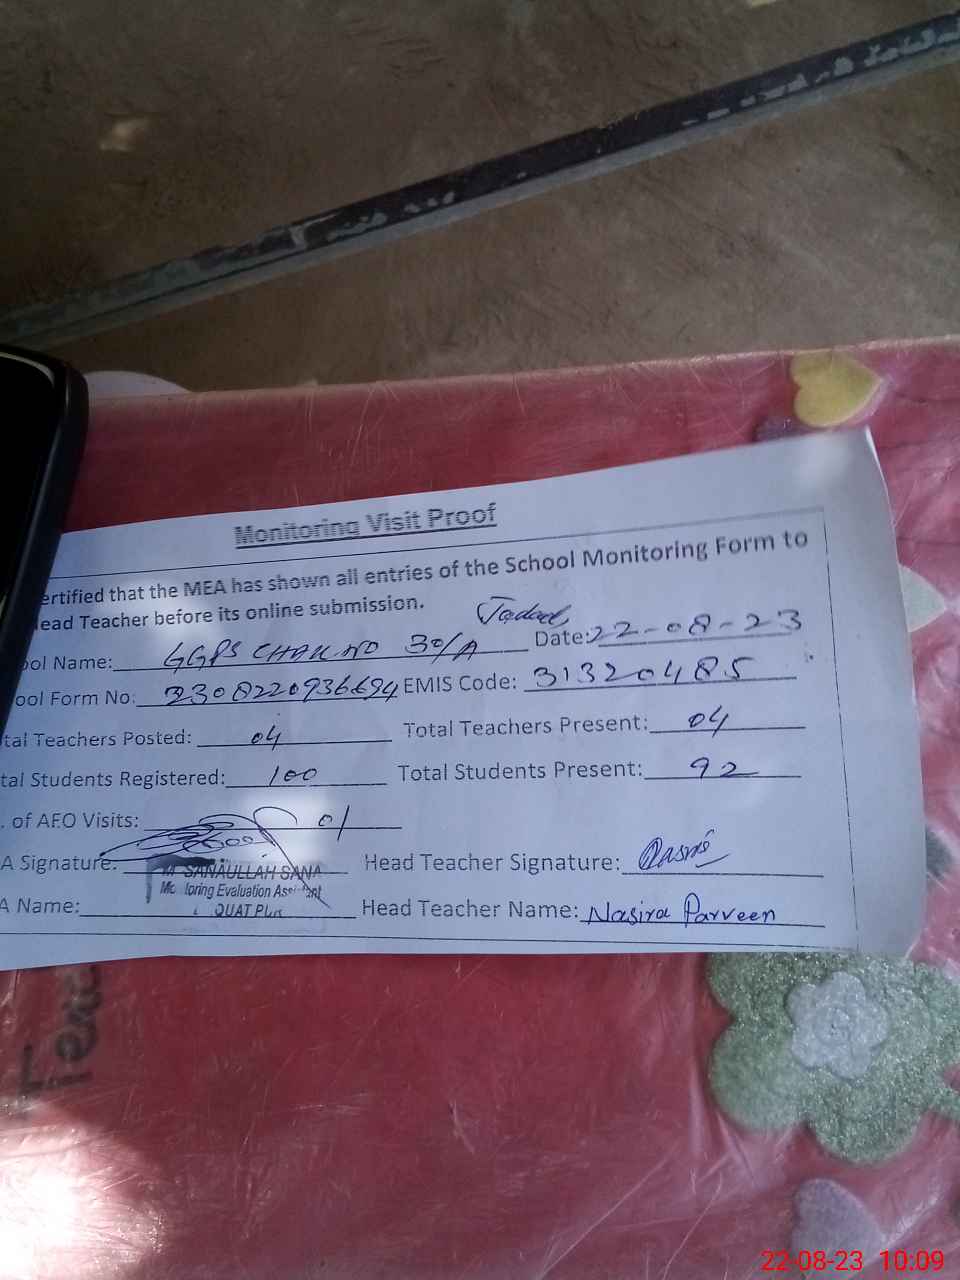 Monitoring Visit Proof
ertified that the MEA has shown all entries of the School Monitoring Form to
ead Teacher before its online submission.
ool Name: GGPS CHAK NO 30/A Jadeed Date: 22-08-23
ool Form No: 2308220936694 EMIS Code: 31320485
tal Teachers Posted: 04 Total Teachers Present: 04
tal Students Registered: 100 Total Students Present: 92
. of AEO Visits: 01
A Signature: Head Teacher Signature:
SANAULLAH SANA
Mo toring Evaluation Assistant
A Name: QUAT PUR Head Teacher Name: Nasira Parveen
22-08-23 10:09